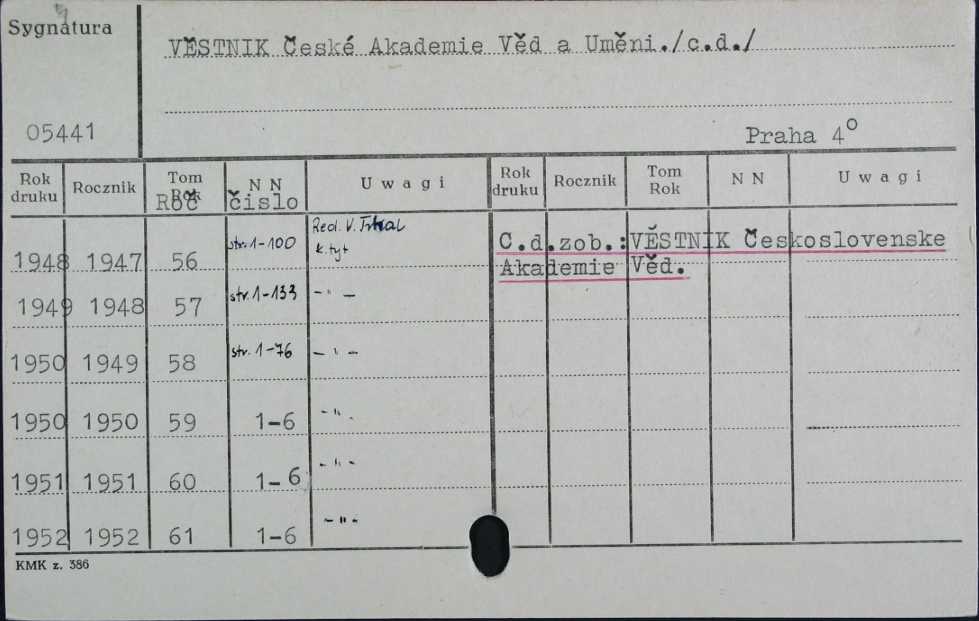 Sygnatura
VĚSTNIK České Akademie Věd a Uměni./c.d./
05441
Praha 4°
Rok druku Rocznik Tom Rok Roč N N číslo U w a g i Rok druku Rocznik Tom Rok N N U w a g i
1948 1947 56 str. 1-100 Red. V. k. tyt
C.d.zob.:VĚSTNIK Československe
Akademie Věd.
1949 1948 57 str. 1-133 – " –
1950 1949 58 str. 1-76 – " –
1950 1950 59 1-6 - " -
1951 1951 60 1-6 - " -
1952 1952 61 1-6 - " -
KMK z. 386